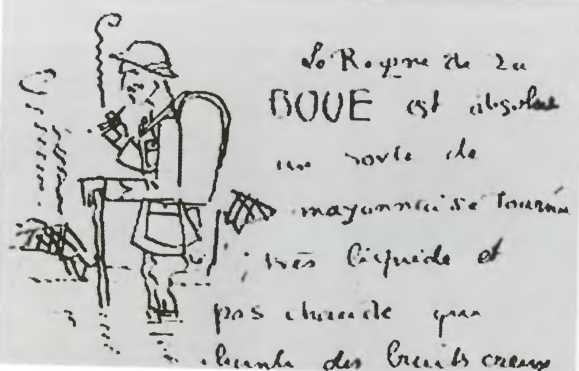 Le Royme de La
BOUE est absolue
une sorte de
mayonnaise tournée
très liquide et
pas chaude qui
chante des bruits creux